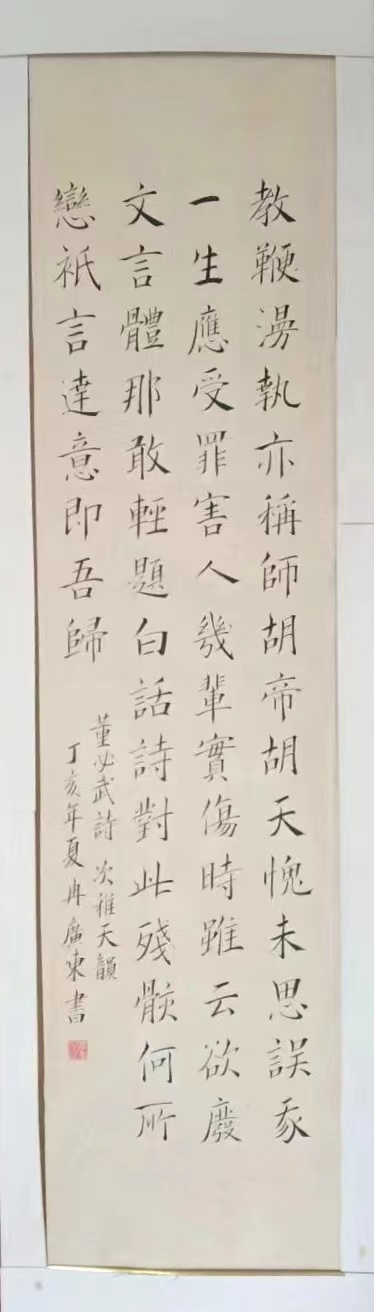 教鞭漫執亦稱師胡帝胡天愧未思誤我
一生應受罪害人幾輩實傷時雖云欲廢
文言體那敢輕題白話詩對此殘骸何所
戀祇言達意即吾歸
董必武詩 次稚天韻
丁亥年夏冉廣東書